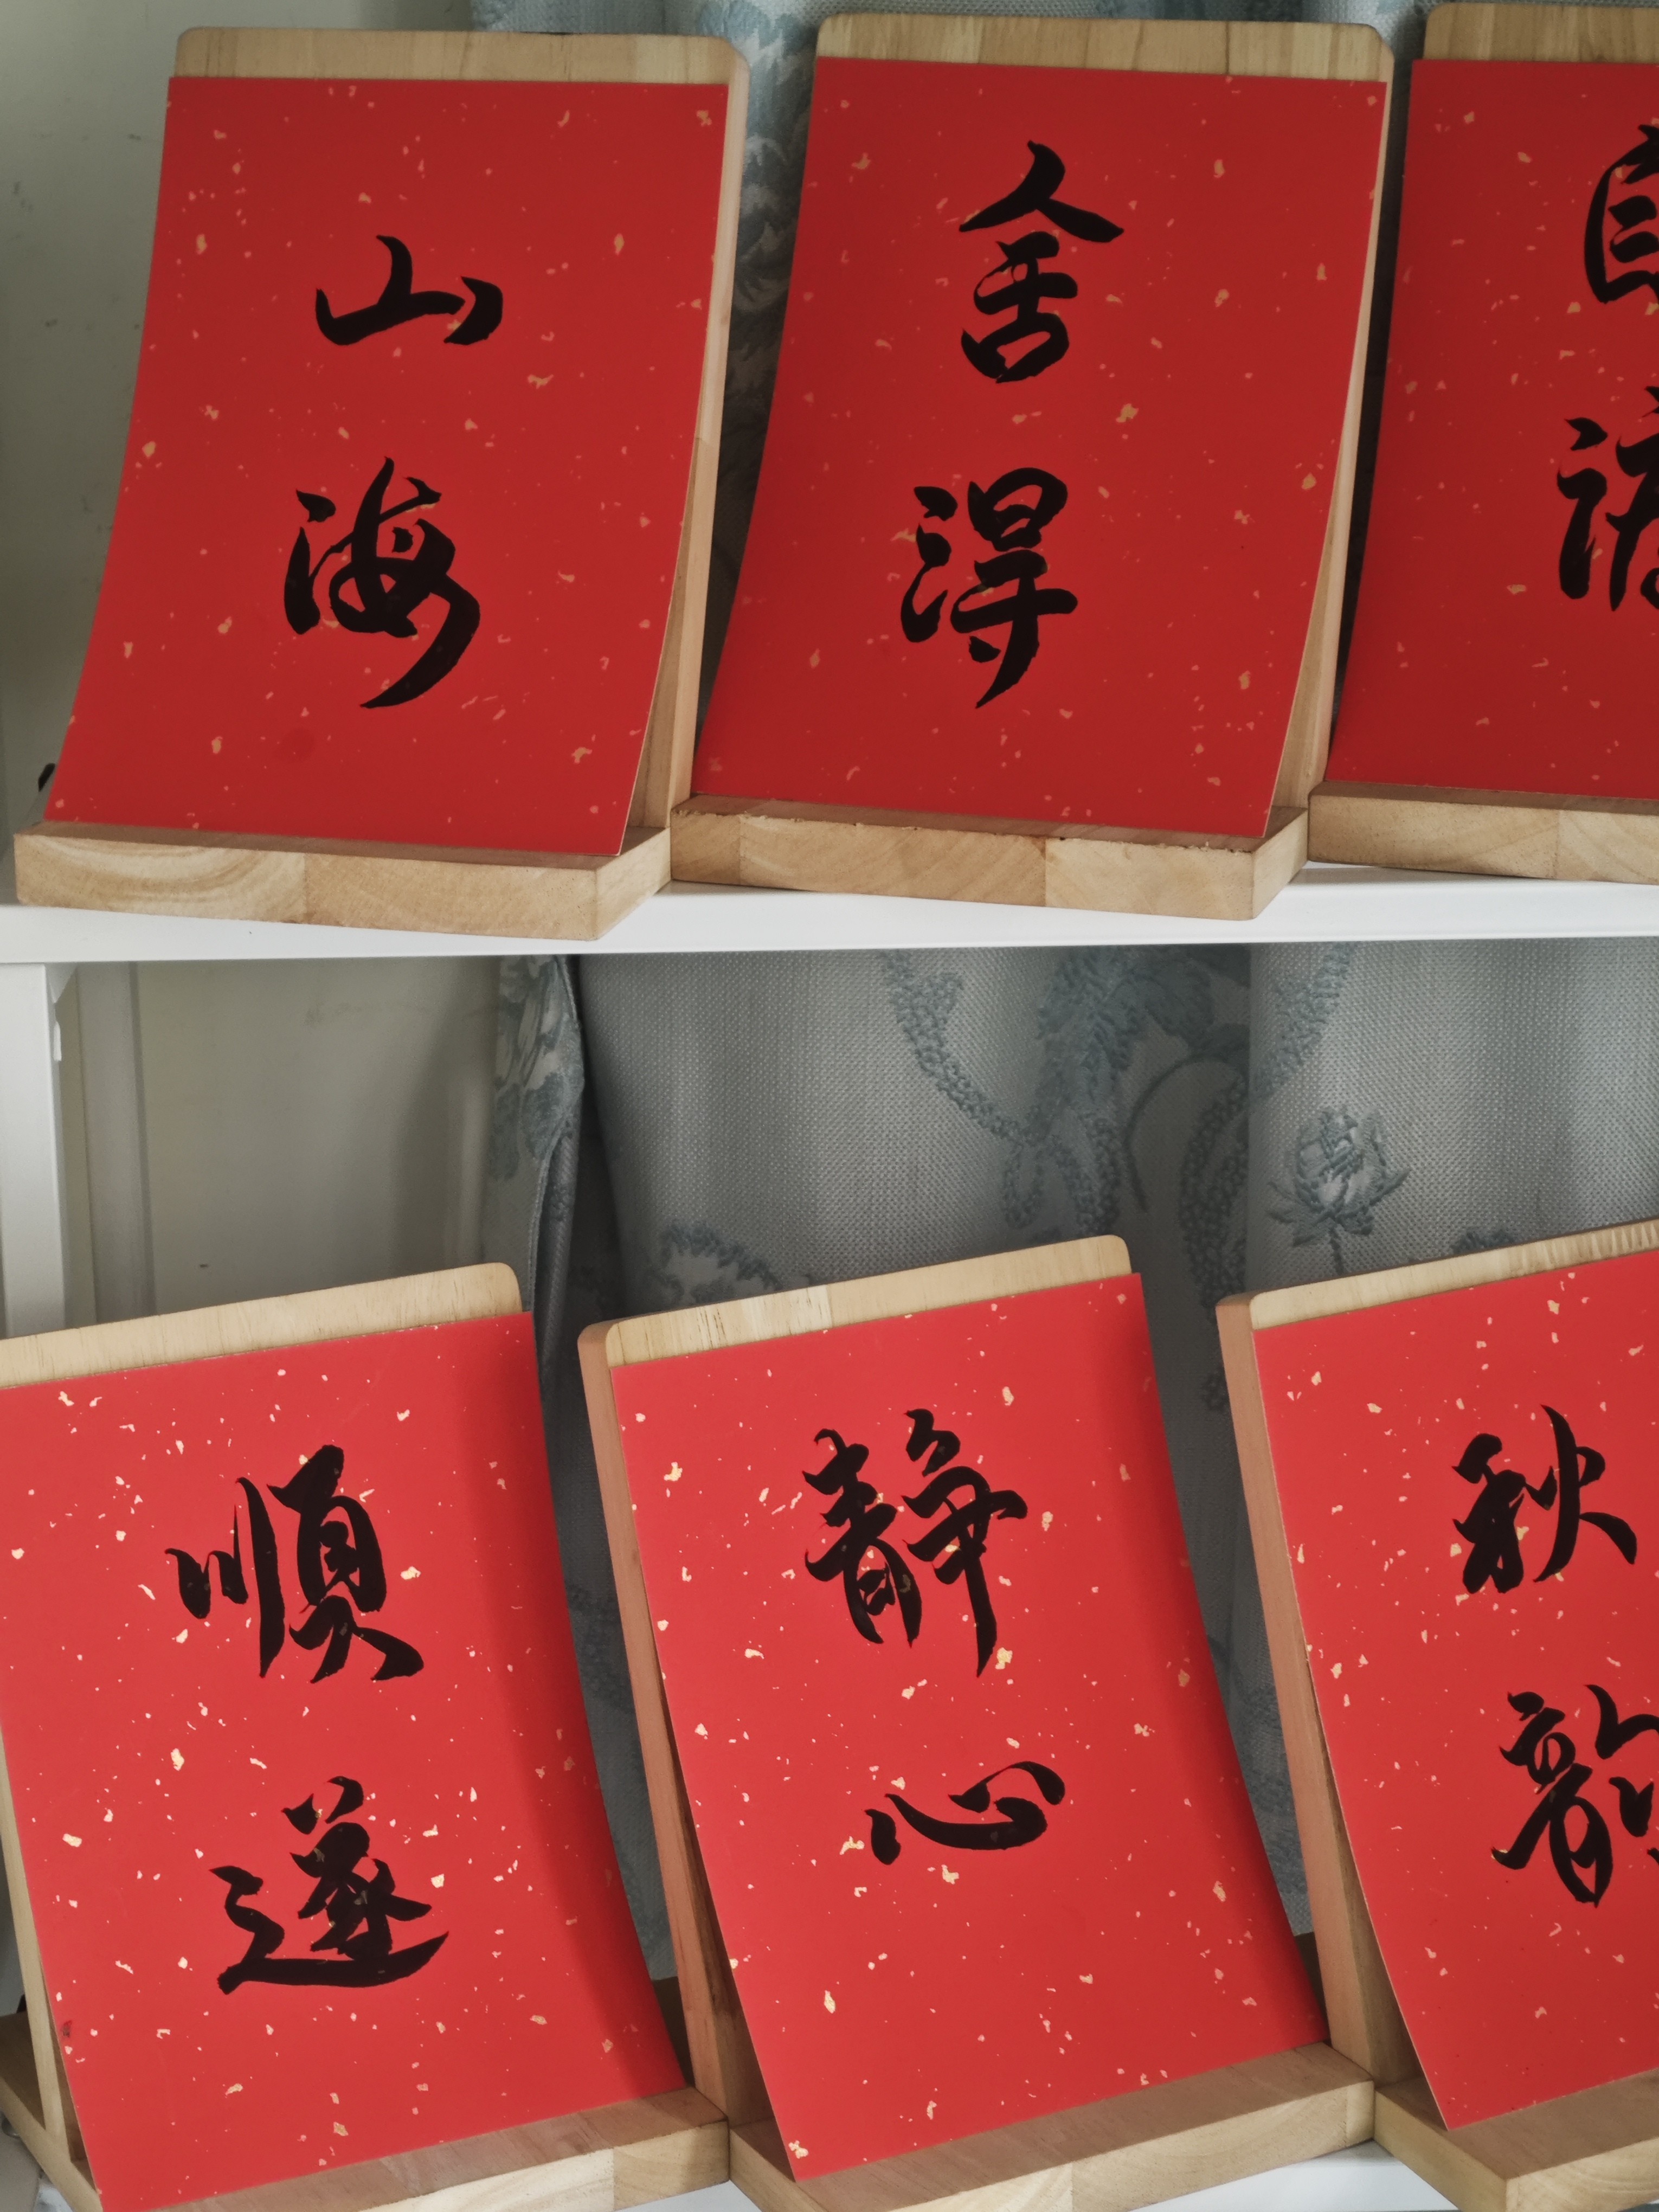 山海
舍得
順遂
静心
秋韵